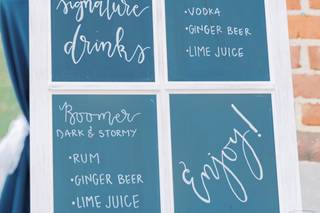 signature
drinks
• VODKA
• GINGER BEER
• LIME JUICE
Boomer
DARK & STORMY
• RUM
• GINGER BEER
• LIME JUICE
& Enjoy!